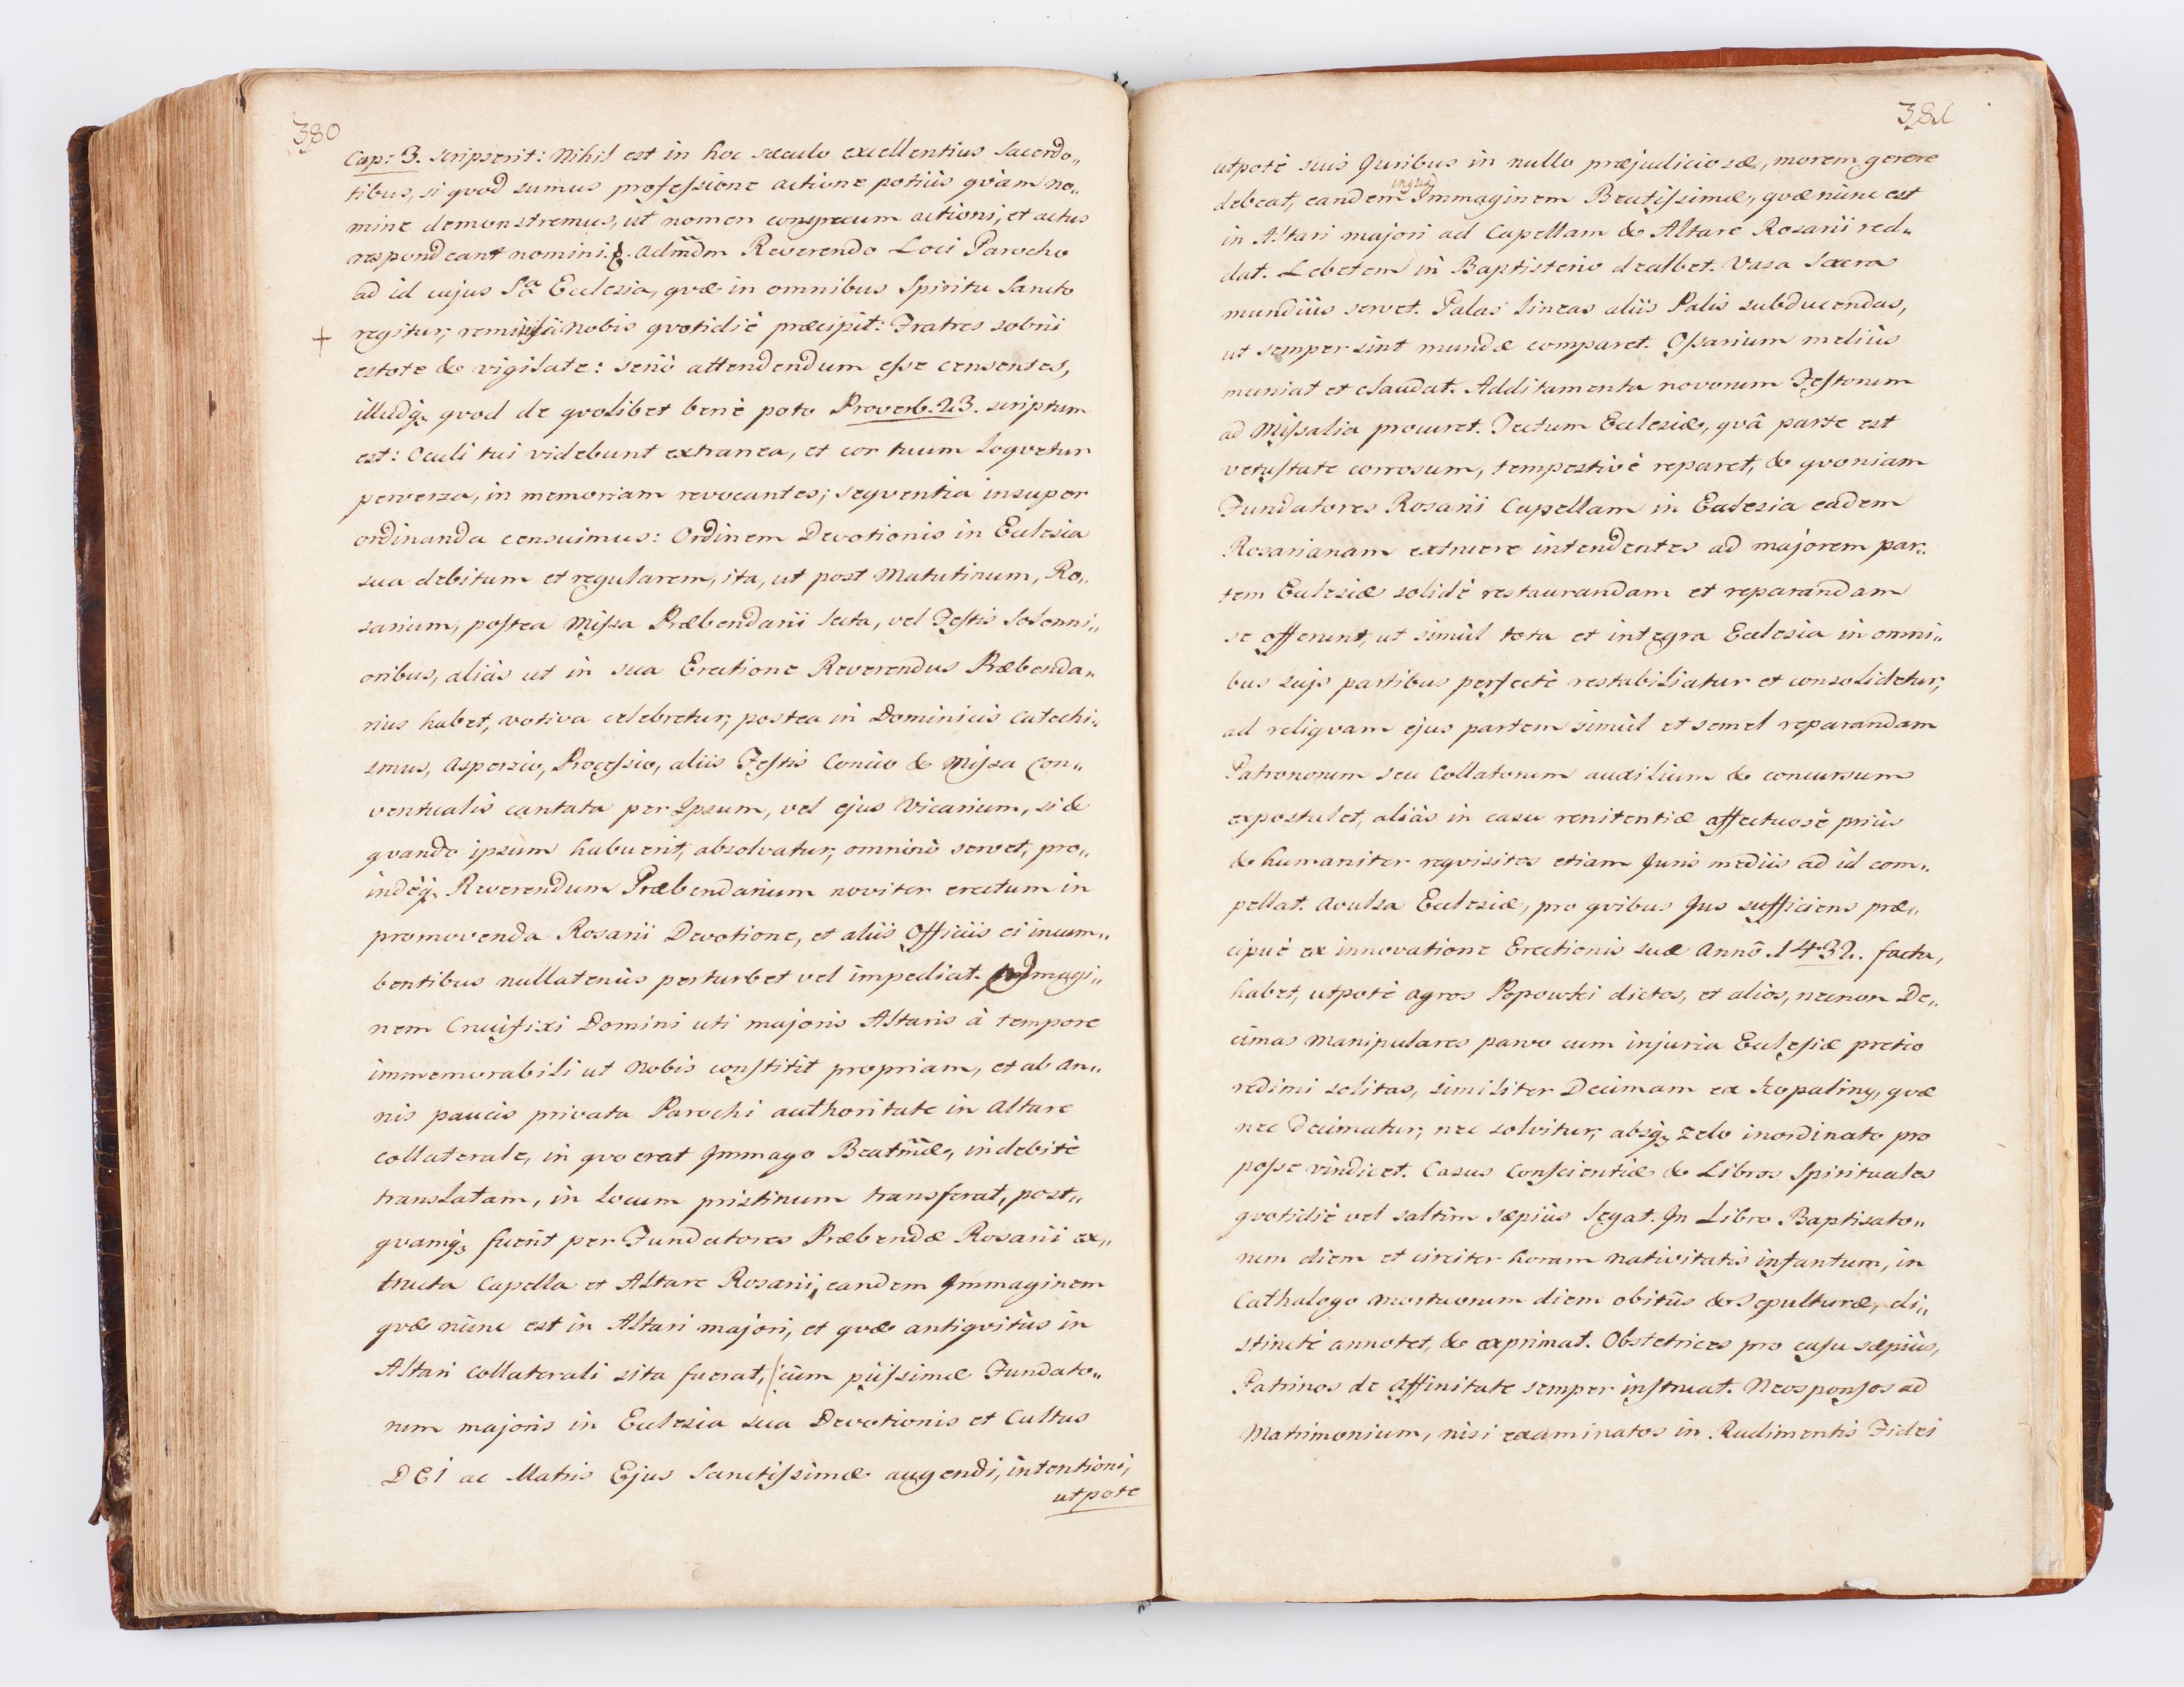 380
Cap: 3. scripserit: Nihil est in hoc sæculo excellentius Sacerdo„
tibus, si qvod sumus professione actione potiùs qvàm no„
mine demonstremus, ut nomen congruum actioni, et actus
respondeant nomini. & Admdm Reverendo Loci Parocho
ad id cujus Sta Ecclesia, qvæ in omnibus Spiritu Sancto
+ regitur, nobis qvotidiè præcipit: Fratres sobrii
estote & vigilate: seriò attendendum esse censentes,
illudq, qvod de qvolibet benè poto Proverb. 23. scriptum
est: Oculi tui videbunt extranea, et cor tuum loqvetur
perversa, in memoriam revocantes; seqventia insuper
ordinanda censuimus: Ordinem Devotionis in Ecclesia
sua debitum et regularem, ita, ut post Matutinum, Ro„
sarium, postea Missa Præbendarii lecta, vel Festis Solenni„
oribus, aliàs ut in sua Erectione Reverendus Præbenda„
rius habet, votiva celebretur, postea in Dominicis Catechi„
smus, Aspersio, Processio, aliis Festis Concio & Missa Con„
ventualis cantata per Ipsum, vel ejus Vicarium, si &
qvando ipsum habuerit, absolvatur, omninò servet, pro„
indèq, Reverendum Præbendarium noviter erectum in
promovenda Rosarii Devotione, et aliis Officiis ei incum„
bentibus nullatenùs perturbet vel impediat. Imagi„
nem Crucifixi Domini uti majoris Altaris à tempore
immemorabili ut Nobis constitit propriam, et ab An„
nis paucis privata Parochi authoritate in Altare
collaterale, in qvo erat Immago Beatmæ, indebitè
translatam, in locum pristinum transferat, post„
qvamq, fuerit per Fundatores Præbendæ Rosarii ex„
tructa Capella et Altare Rosarii, eandem Immaginem
qvæ nunc est in Altari majori, et qvæ antiqvitùs in
Altari collaterali sita fuerat, cùm piissimæ Fundato„
rum majoris in Ecclesia sua Devotionis et Cultus
DEI ac Matris Ejus Sanctissimæ augendi, intentioni,
utpote
381
utpotè suis Juribus in nullo præjudiciosæ, morem gerere
debeat, eandem inquã Immaginem Beatissimæ, qvæ nunc est
in Altari majori ad Capellam & Altare Rosarii red„
dat. Lebetem in Baptisterio dealbet. Vasa Sacra
mundiùs servet. Palas lineas aliis Palis subducendas,
ut semper sint mundæ comparet. Ossarium meliùs
muniat et claudat. Additamenta novorum Festorum
ad Missalia procuret. Tectum Ecclesiæ, qvâ parte est
vetustate corrosum, tempestivè reparet, & qvoniam
Fundatores Rosarii Capellam in Ecclesia eadem
Rosarianam extruere intendentes ad majorem par„
tem Ecclesiæ solidè restaurandam et reparandam
se offerunt, ut simùl tota et integra Ecclesia in omni„
bus sujs partibus perfectè restabiliatur et consolidetur,
ad reliqvam ejus partem simùl et semel reparandam
Patronorum seu Collatorum auxilium & concursum
expostulet, aliàs in casu renitentiæ affectuosè priùs
& humaniter reqvisitos etiam Juris mediis ad id com„
pellat. Avulsa Ecclesiæ, pro qvibus Jus sufficiens præ„
cipuè ex innovatione Erectionis suæ Annô 1432. facta,
habet, utpotè agros Popowski dictos, et alios, necnon De„
cimas Manipulares parvo cum injuria Ecclesiæ pretio
redimi solitas, similiter Decimam ex Kopaliny, qvæ
nec Decimatur, nec solvitur, absq, zelo inordinato pro
posse vindicet. Casus Conscientiæ & Libros Spirituales
qvotidiè vel saltim sæpiùs legat. In Libro Baptisato„
rum diem et circiter horam nativitatis infantum, in
Cathalogo Mortuorum diem obitûs & Sepulturæ, di„
stinctè annotet, & exprimat. Obstetrices pro casu sæpiùs,
Patrinos de affinitate semper instruat. Neosponsos ad
Matrimonium, nisi examinatos in Rudimentis Fidei